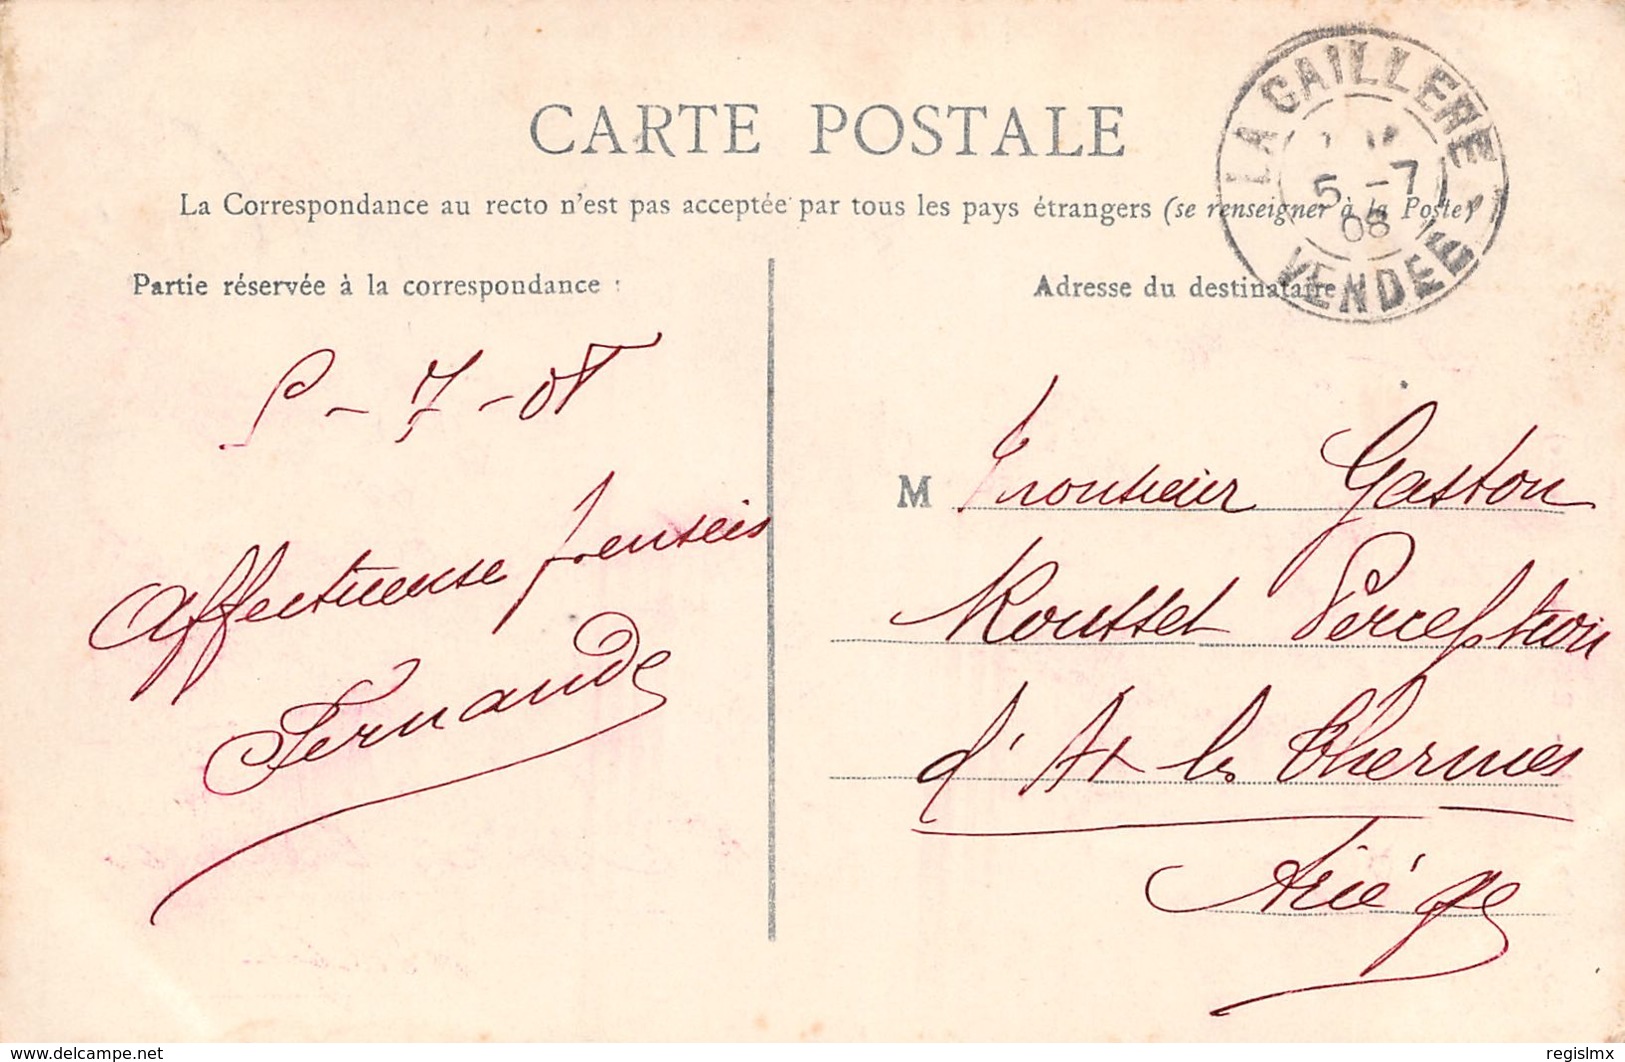 CARTE POSTALE
La Correspondance au recto n'est pas acceptée par tous les pays étrangers (se renseigner à la Poste)
LA CAILLERE
5 -7
08
VENDEE
Partie réservée à la correspondance :
5 - 7 - 08
Affectueuse pensées
Fernande
Adresse du destinataire
M Monsieur Gaston
Rousset Perception
d'Ax les Thermes
Ariége
delcampe.net
regislmx